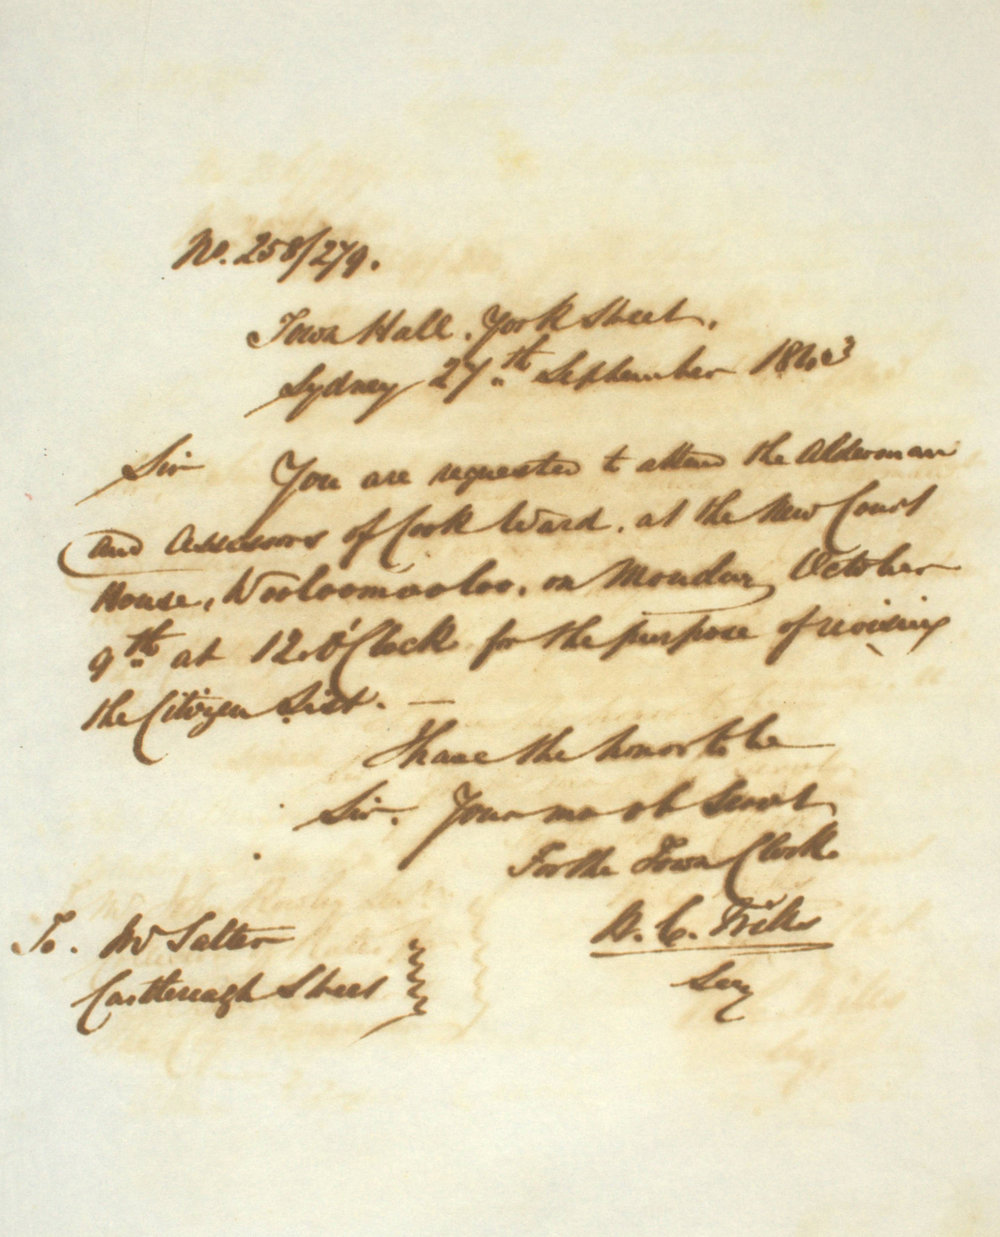 No. 258/279.
Town Hall. York Street.
Sydney 27th September 1843
Sir You are requested to attend the Alderman
and Assessors of Cook Ward. at the New Court
House, Wooloomooloo, on Monday October
9th at 12.O'Clock for the purpose of revising
the Citizen List. —
I have the honor to be
Sir. Your mo ob Servt
For the Town Clerk
To. Mr Salter
Castlereagh Street